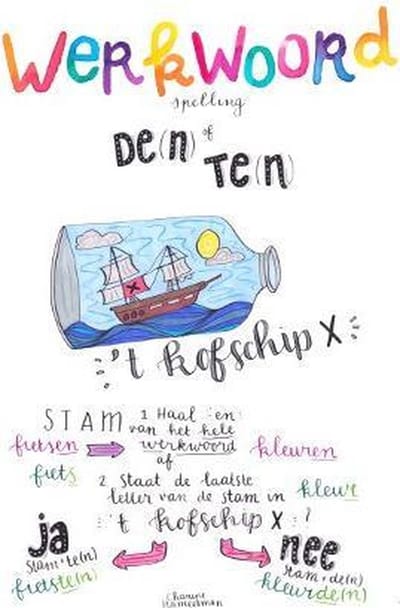 Werkwoord
spelling
De(n) of
Te(n)
't kofschip X
STAM
1 Haal "en"
van het hele
werkwoord
af
fietsen
kleuren
fiets
2 Staat de laatste
letter van de stam in
kleur
't kofschip X ?
ja
nee
stam+te(n)
stam+de(n)
fietste(n)
kleurde(n)